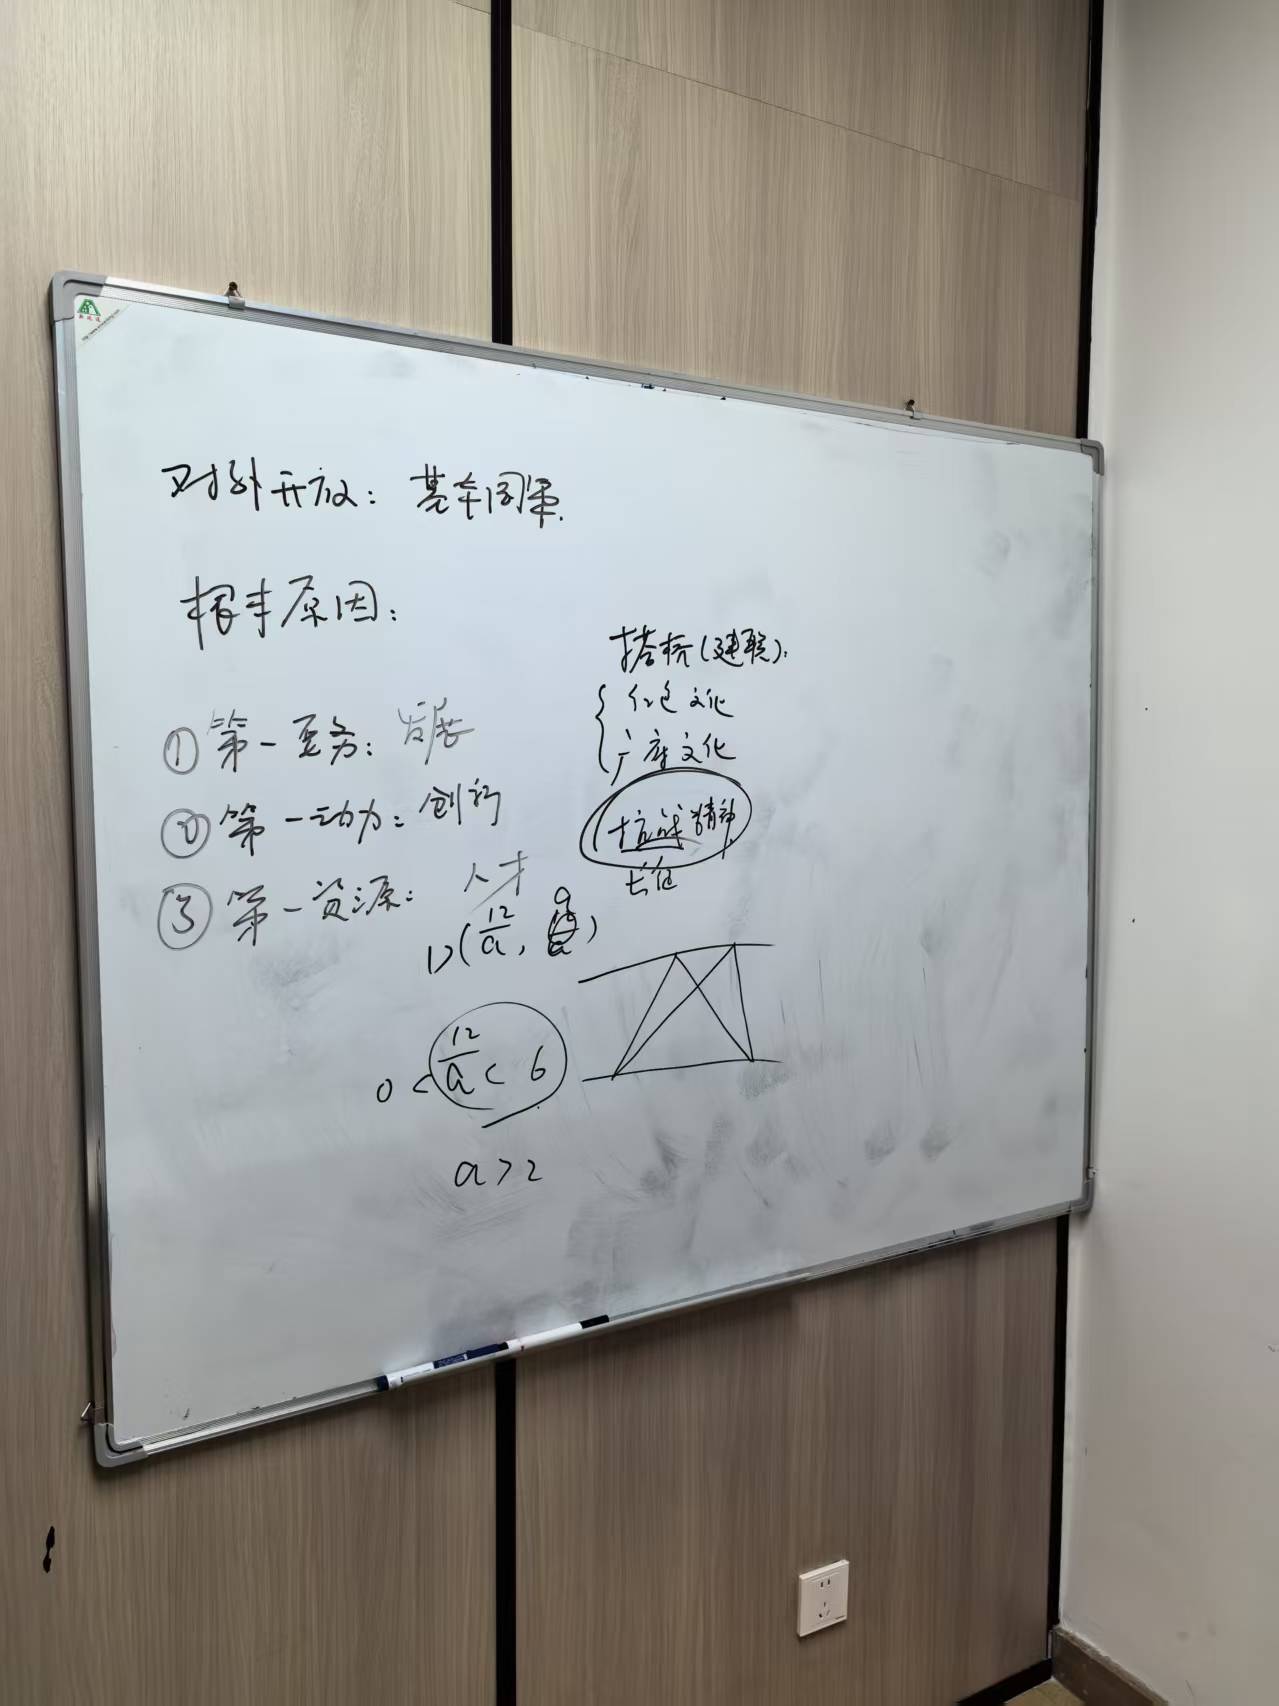 对外开放：基本国策.
根本原因：
①第一要务：发展
②第一动力：创新
③第一资源：人才
搭桥(建联)：
红色文化
广府文化
抗战精神
长征
D(12/a, a)
0<12/a<6
a>2